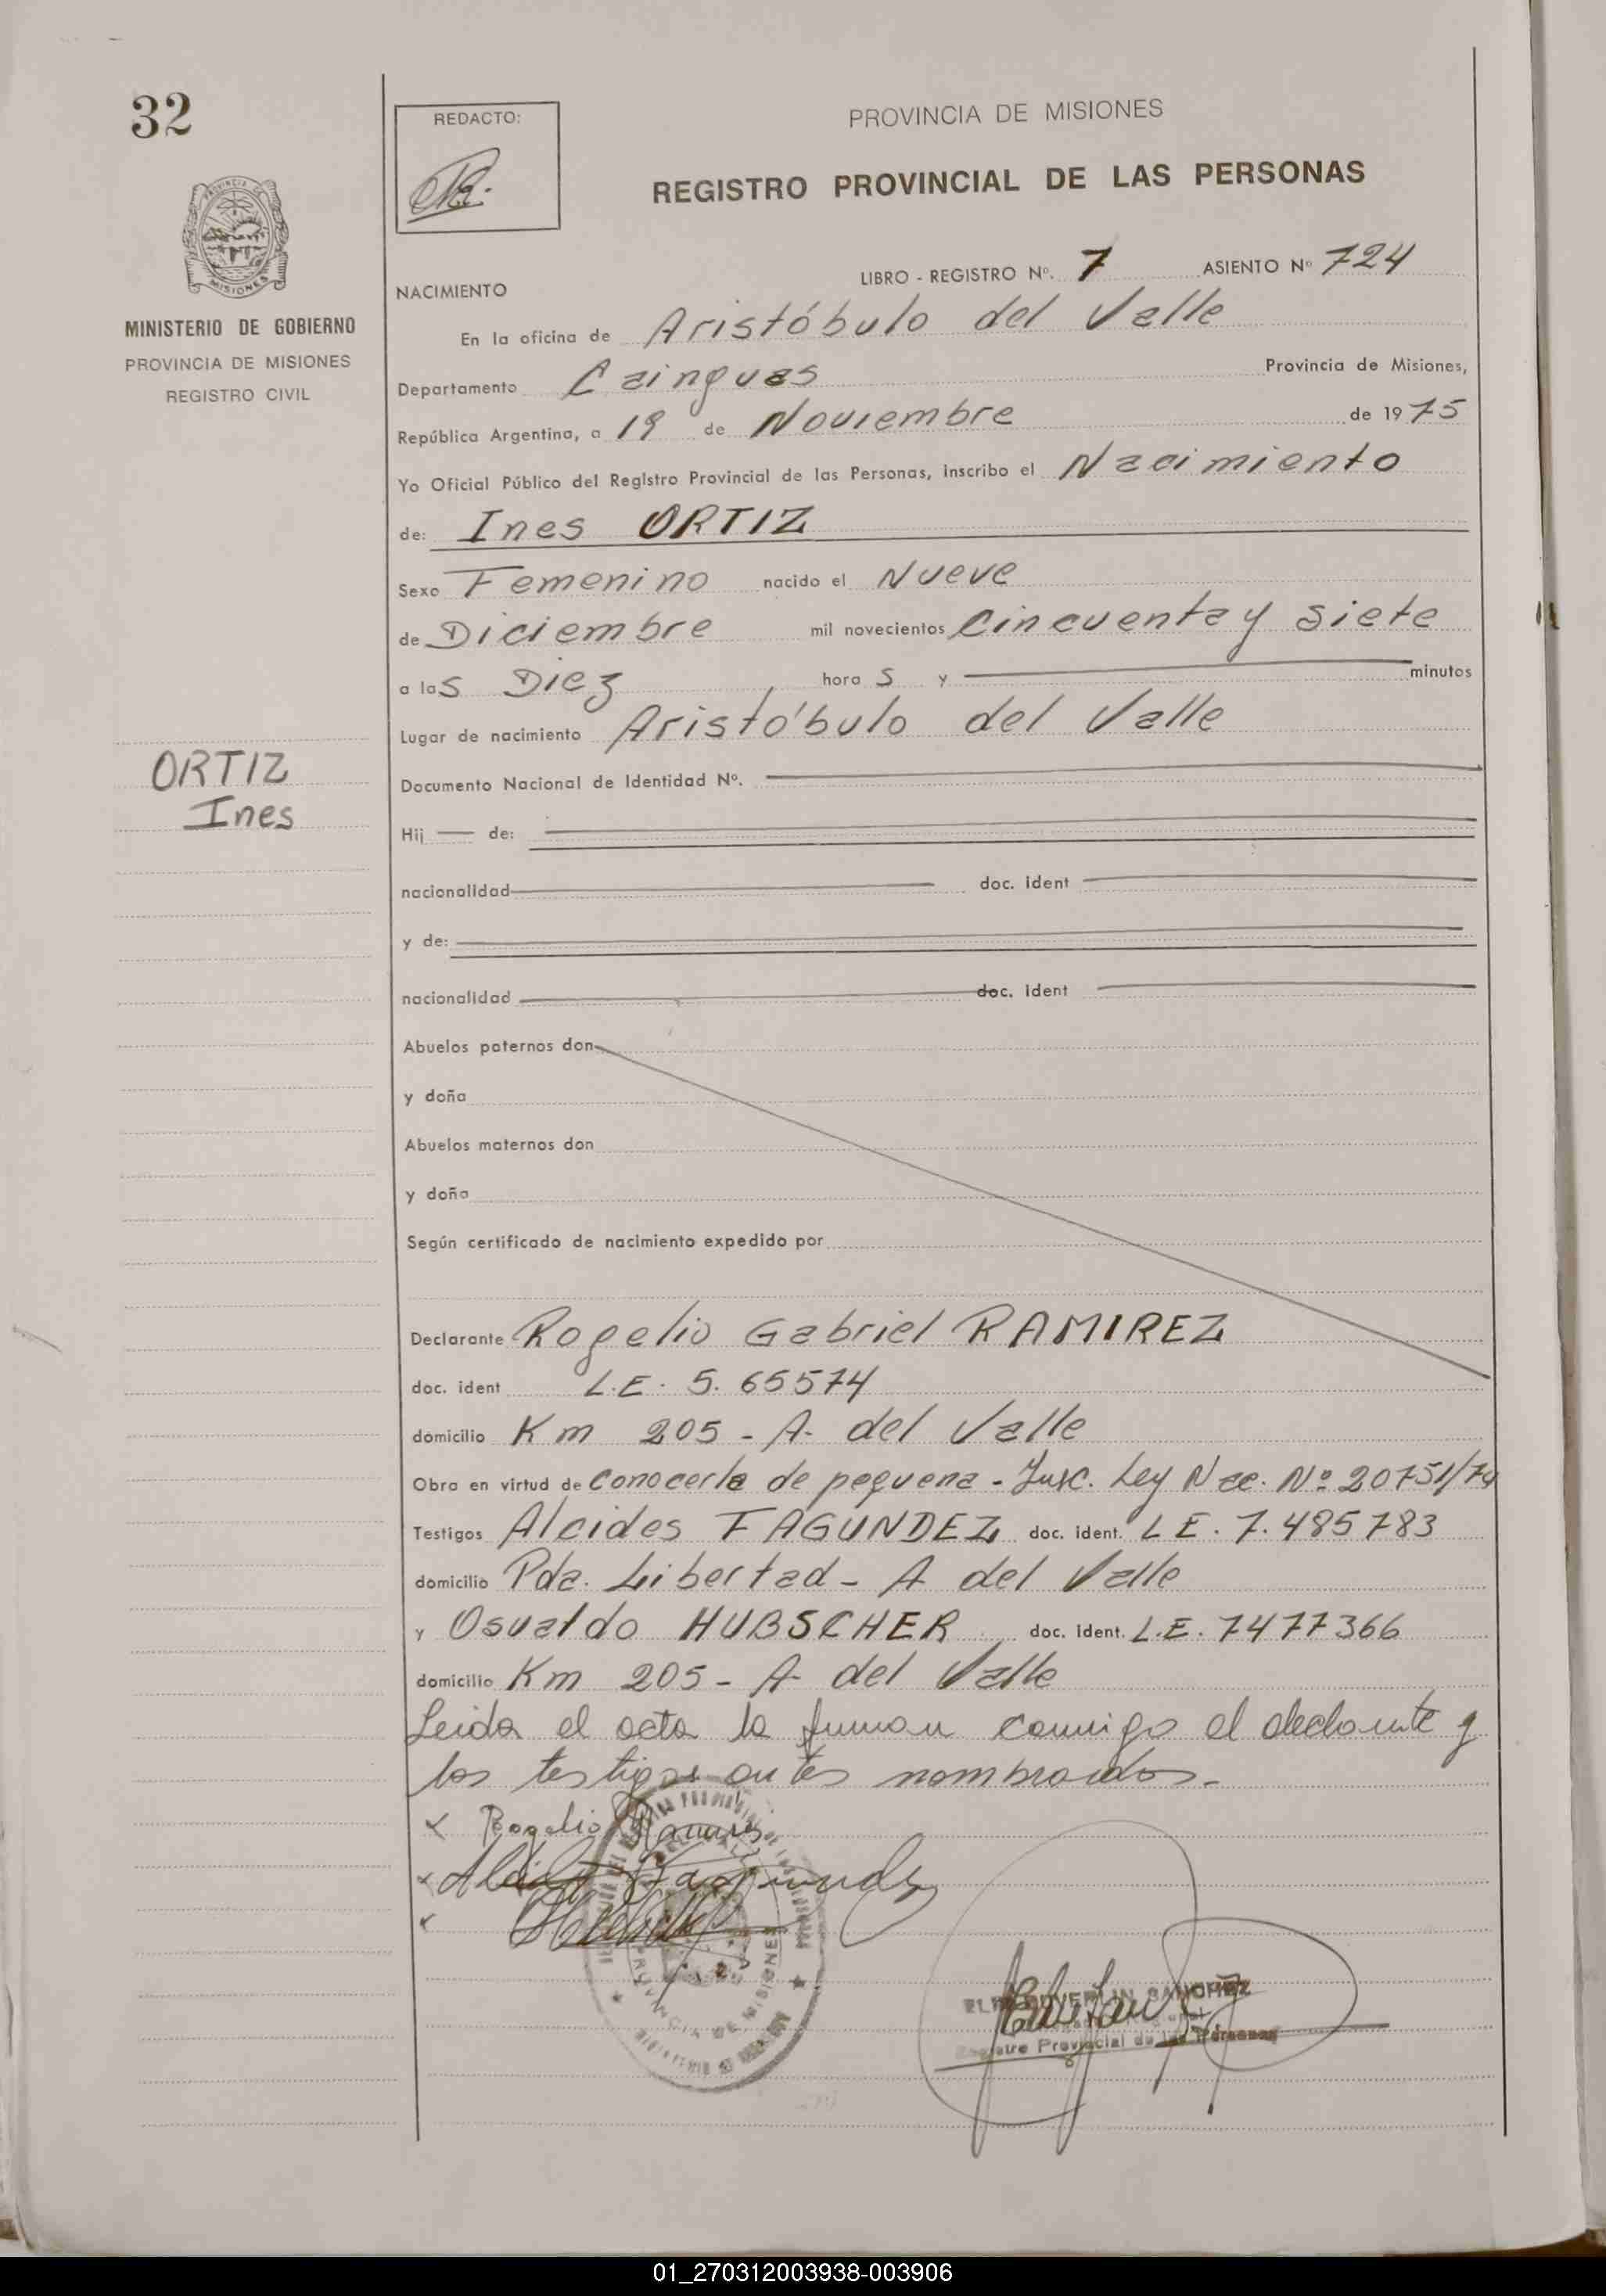 32
REDACTO:
PROVINCIA DE MISIONES
REGISTRO PROVINCIAL DE LAS PERSONAS
LIBRO - REGISTRO Nº. 7 ASIENTO Nº 724
NACIMIENTO
MISIONES
MINISTERIO DE GOBIERNO
PROVINCIA DE MISIONES
REGISTRO CIVIL
En la oficina de Aristóbulo del Valle
Departamento Cainguas Provincia de Misiones,
República Argentina, a 19 de Noviembre de 1975
Yo Oficial Público del Registro Provincial de las Personas, inscribo el Nacimiento
de: Ines ORTIZ
Sexo Femenino nacido el Nueve
de Diciembre mil novecientos Cincuenta y siete
a las Diez horas y minutos
Lugar de nacimiento Aristóbulo del Valle
ORTIZ
Ines
Documento Nacional de Identidad Nº.
Hij de:
nacionalidad doc. ident
y de:
nacionalidad doc. ident
Abuelos paternos don
y doña
Abuelos maternos don
y doña
Según certificado de nacimiento expedido por
Declarante Rogelio Gabriel RAMIREZ
doc. ident L.E. 5. 65574
domicilio Km 205 - A. del Valle
Obra en virtud de conocerla de pequena - Insc. Ley Nac. Nº 20751/74
Testigos Alcides FAGUNDEZ doc. ident. L E. 7.485783
domicilio Pda. Libertad - A del Valle
y Osvaldo HUBSCHER doc. ident. L.E. 7477366
domicilio Km 205 - A del Valle
Leida el acta la firman conmigo el declarante y
los testigos antes nombrados.-
x Rogelio Ramires
x Alcides Fagundez
x
PROVINCIA DE MISIONES
SANCHEZ
Registro Provincial de las Personas
01_270312003938-003906